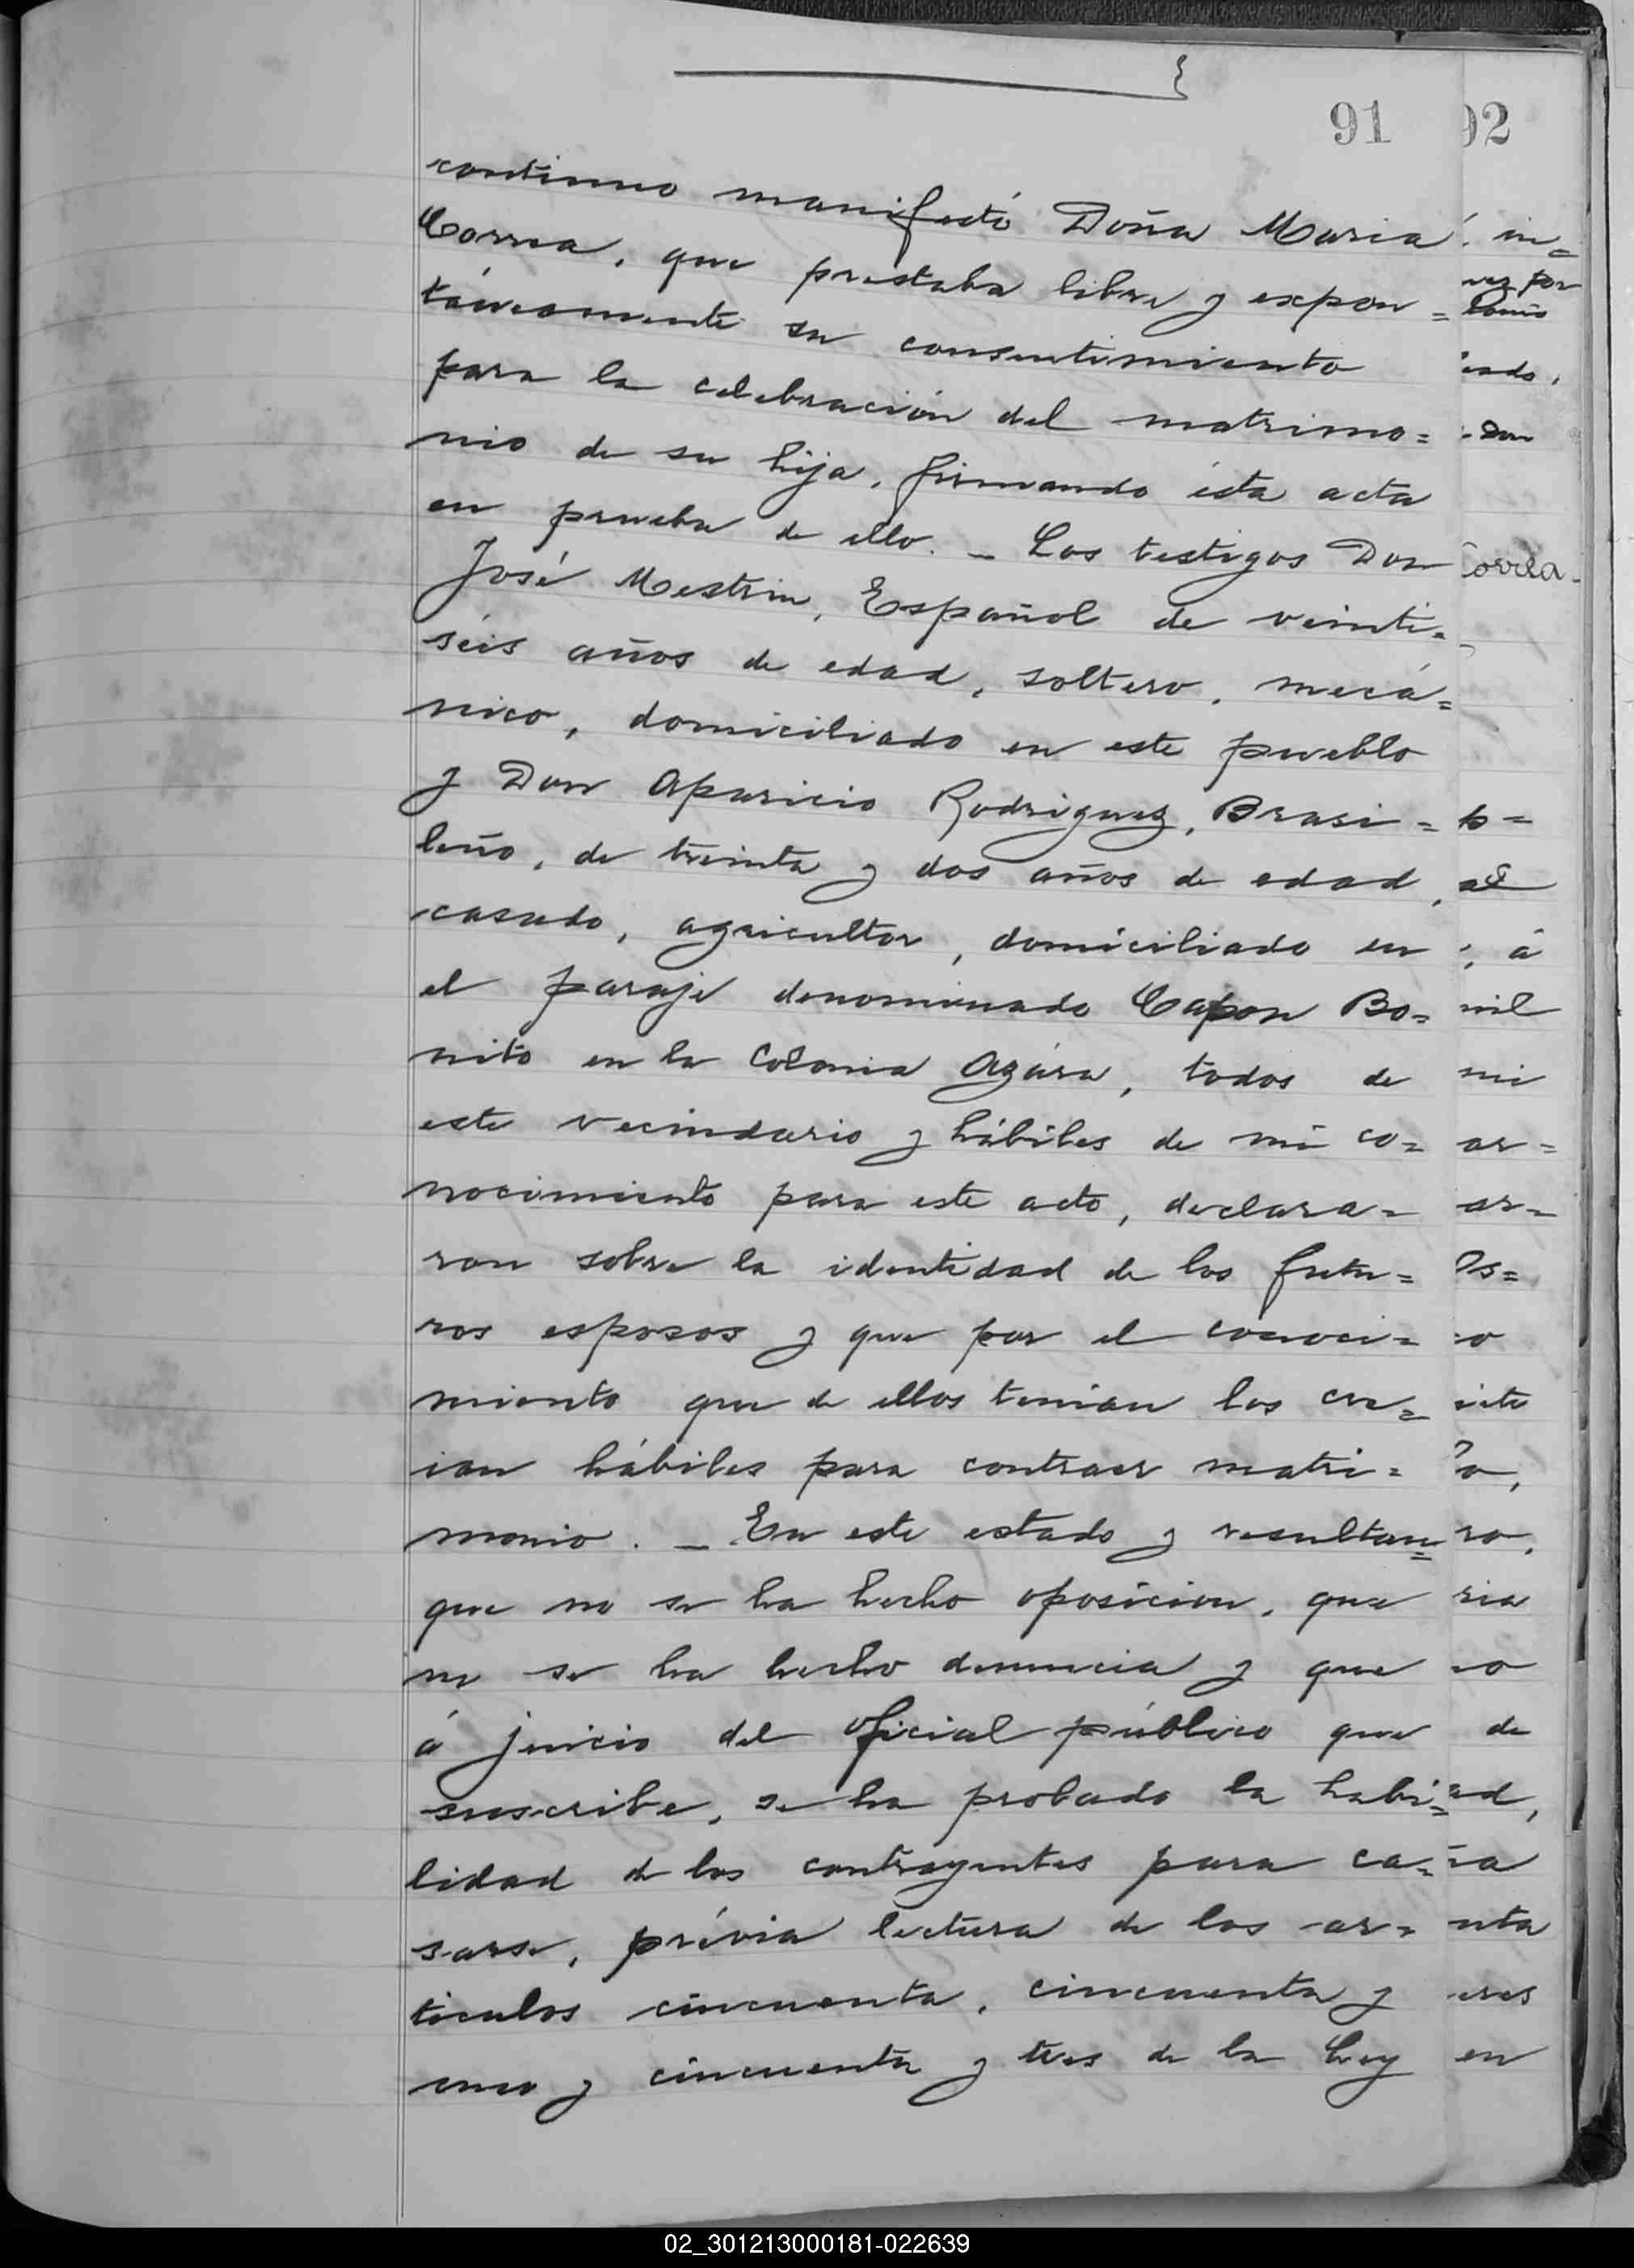 91
92
continuo manifestó Doña Maria
Correa, que prestaba libre y expon=
táneamente su consentimiento
para la celebración del matrimo=
nio de su hija, firmando ésta acta
en prueba de ello. _ Los testigos Don
José Mestrin, Español de veinti=
séis años de edad, soltero, mecá=
nico, domiciliado en este pueblo
y Don Aparicio Rodriguez, Brasi=
leño, de treinta y dos años de edad,
casado, agricultor, domiciliado en
el paraje denominado Capon Bo=
nito en la Colonia Azára, todos de
este vecindario y hábiles de mi co=
nocimiento para este acto, declara=
ron sobre la identidad de los futu=
ros esposos y que por el conoci=
miento que de ellos tenian los cre=
ian hábiles para contraer matri=
monio. _ En este estado y resultan=
que no se ha hecho oposicion, que
no se ha hecho denuncia y que
á juicio del oficial público que
suscribe, se ha probado la habi=
lidad de los contrayentes para ca=
sarse, prévia lectura de los ar=
ticulos cincuenta, cincuenta y
uno y cincuenta y tres de la Ley
in=
vez por
Don
Correa
al
á
mil
mi
ar=
ar=
os=
o
ro,
ria
de
en
02_301213000181-022639